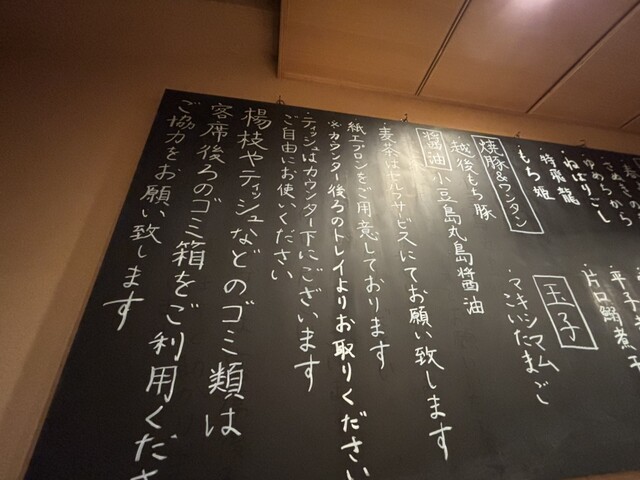 さぬきの
・ゆめちから
・ねばりごし
・特飛龍
・もち姫
平子煮
片口鰯煮干
焼豚&ワンタン
越後もち豚
玉子
・マキシマム
こいたまご
醤油 小豆島丸島醤油
・麦茶はセルフサービスにてお願い致します
・紙エプロンをご用意しております
※カウンター後ろのトレイよりお取りください
・ティッシュはカウンター下にございます
ご自由にお使いください
楊枝やティッシュなどのゴミ類は
客席後ろのゴミ箱をご利用くださ
ご協力をお願い致します